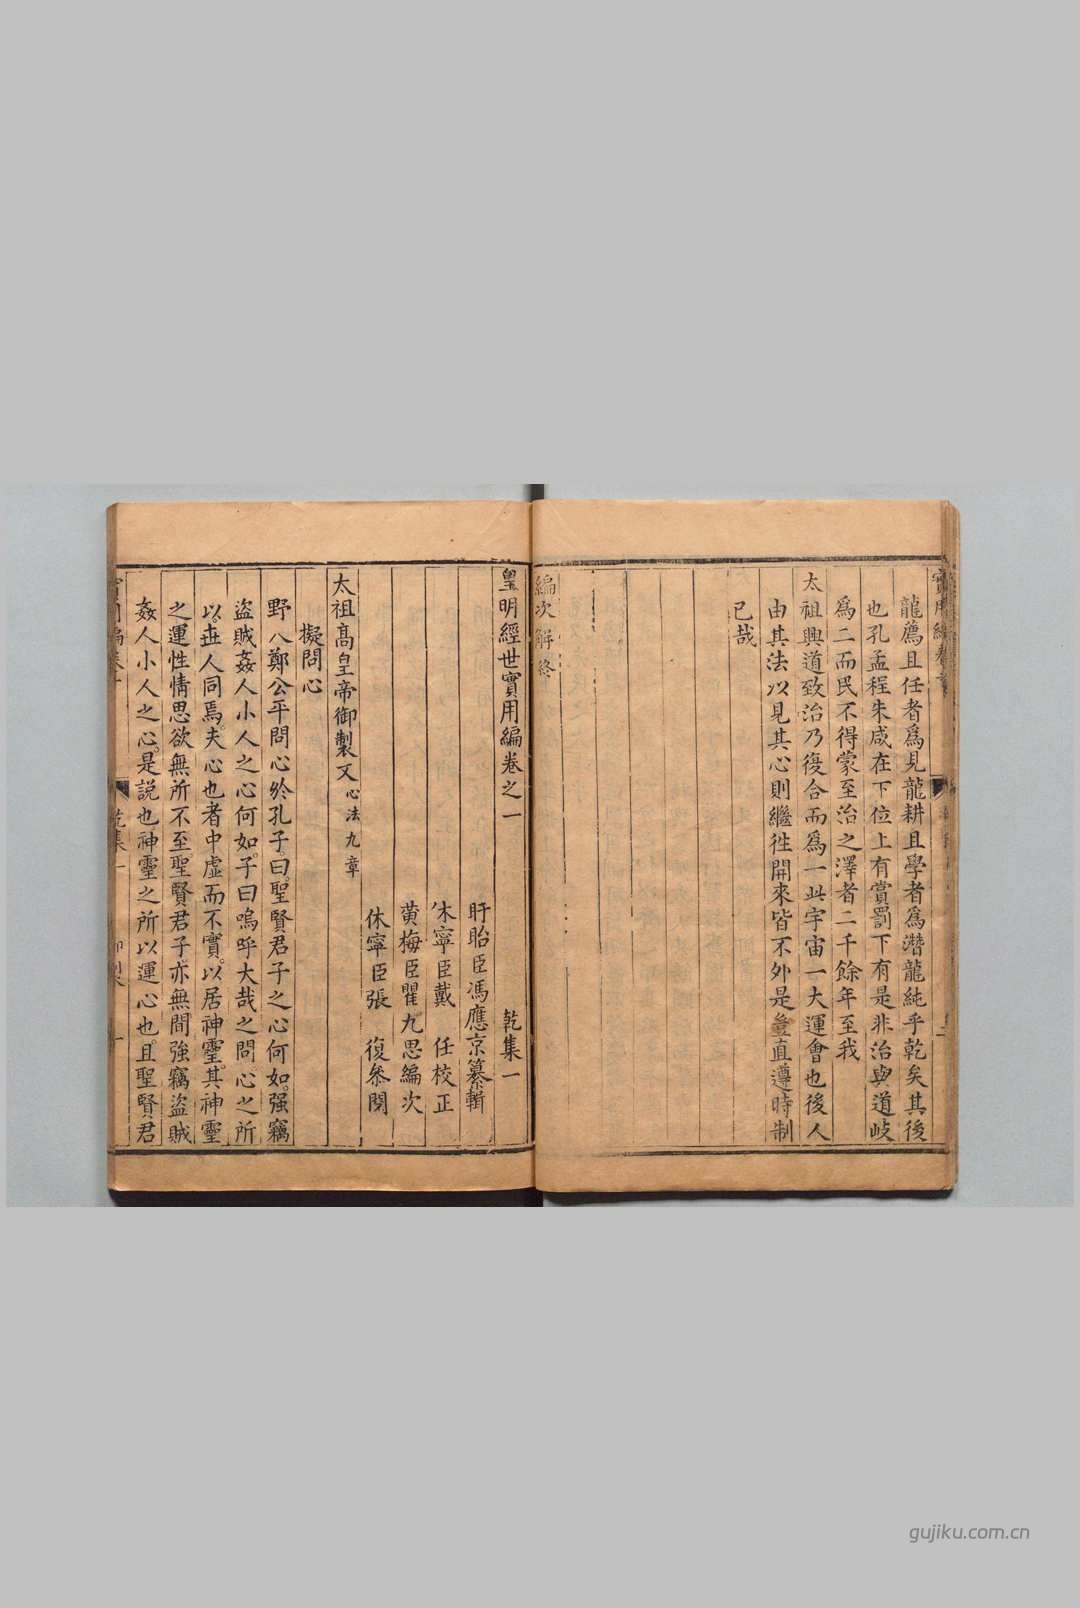 龍鷹且任者爲見龍耕且學者爲潛龍純乎乾矣其後
也孔孟程朱咸在下位上有賞罰下有是非治與道岐
爲二而民不得蒙至治之澤者二千餘年至我
太祖興道致治乃復合而爲一此宇宙一大運會也後人
由其法以見其心則繼徃開來皆不外是豈直遵時制
已哉
編次解終
皇明經世實用編卷之一 乾集一
盱眙臣馮應京纂輯
休寧臣戴 任校正
黃梅臣瞿九思編次
休寧臣張 復參閱
太祖高皇帝御製文心法九章
擬問心
野人鄭公平問心於孔子曰聖賢君子之心何如强竊
盜賊姦人小人之心何如子曰嗚呼大哉之問心之所
以世人同焉夫心也者中虛而不實以居神靈其神靈
之運性情思欲無所不至聖賢君子亦無間強竊盜賊
姦人小人之心是說也神靈之所以運心也且聖賢君
乾集一
gujiku.com.cn